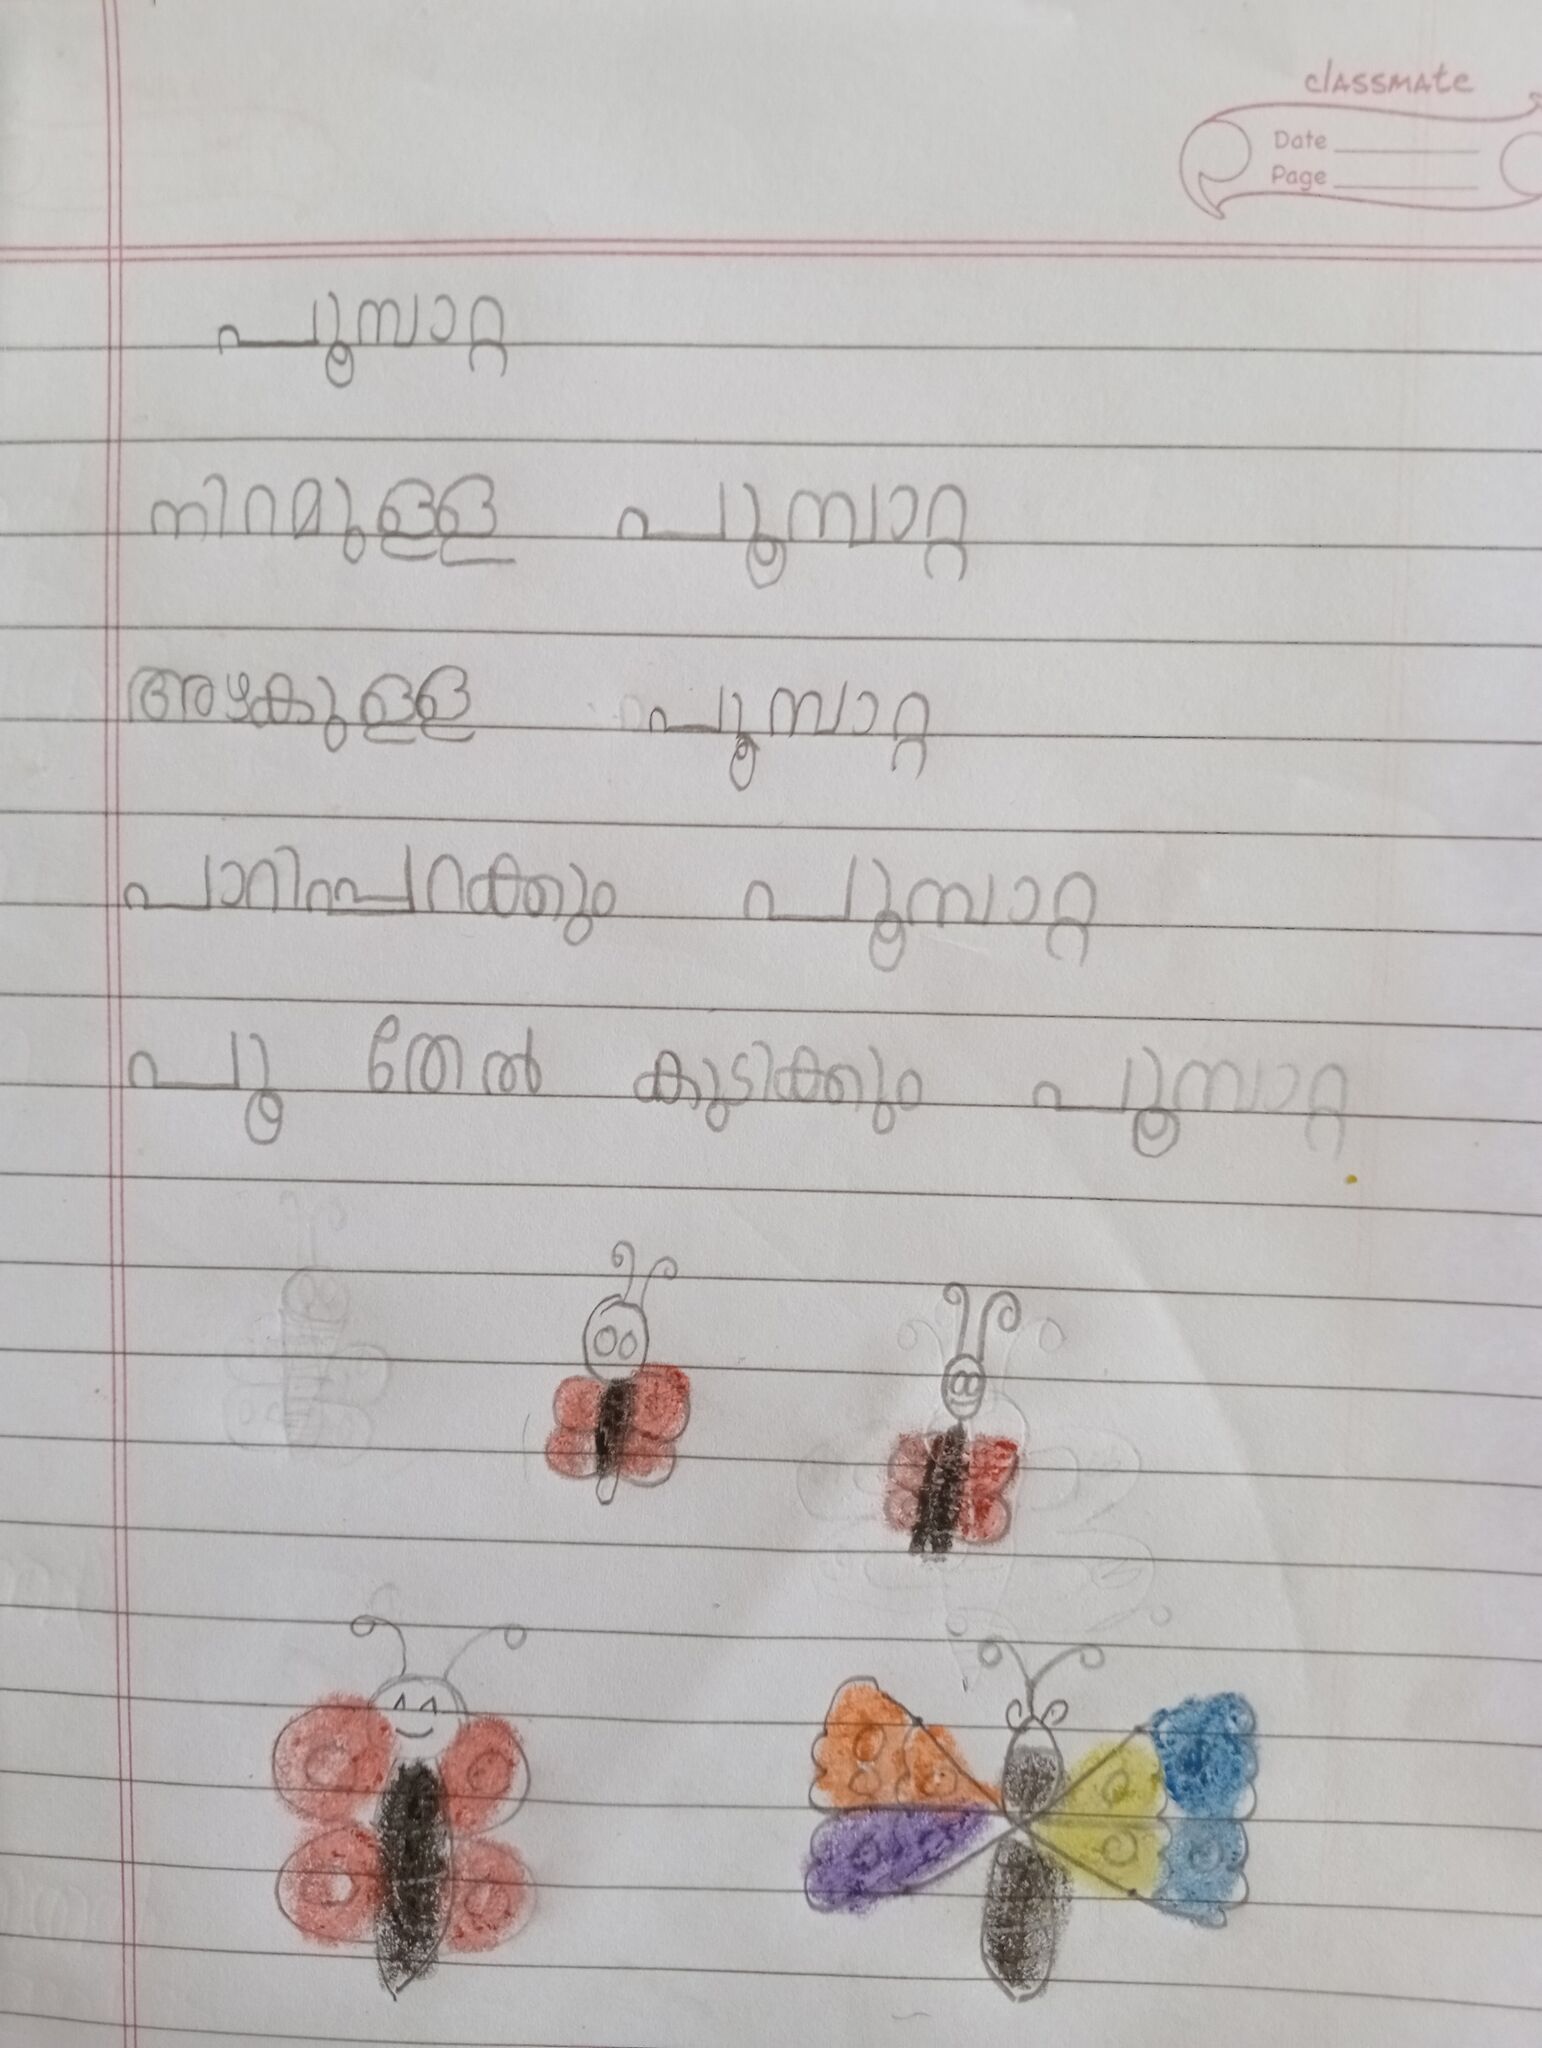 classmate
Date
Page
പൂമ്പാറ്റ
നിറമുള്ള പൂമ്പാറ്റ
അഴകുള്ള പൂമ്പാറ്റ
പാറിപ്പറക്കും പൂമ്പാറ്റ
പൂ തേൽ കുടിക്കും പൂമ്പാറ്റ